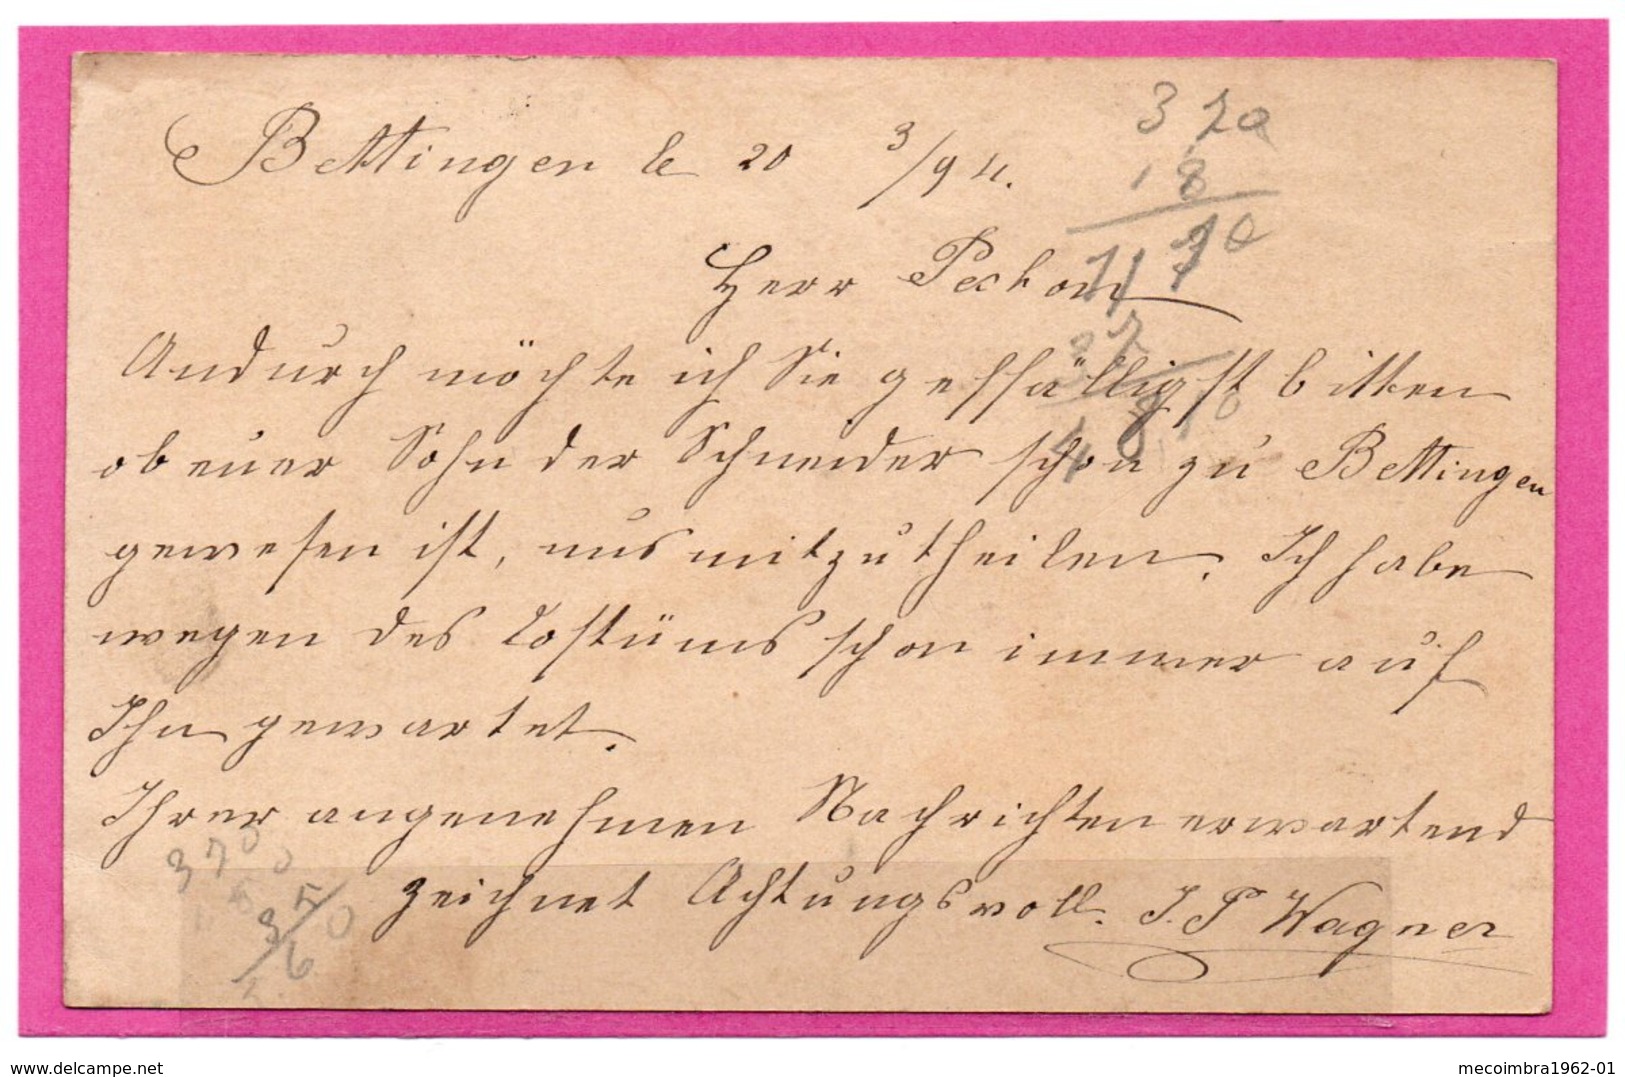 Bettingen le 20 3/94.
3 20
18
Herr
Andurch möchte ich Sie geffälligst bitten
ob euer Sohn der Schneider schon zu Bettingen
gewesen ist, uns mitzutheilen. Ich habe
wegen des Costüms schon immer auf
Ihn gewartet.
Ihrer angenehmen Nachrichten erwartend
zeichnet Achtungsvoll. J. P Wagner
delcampe.net
mecoimbra1962-01